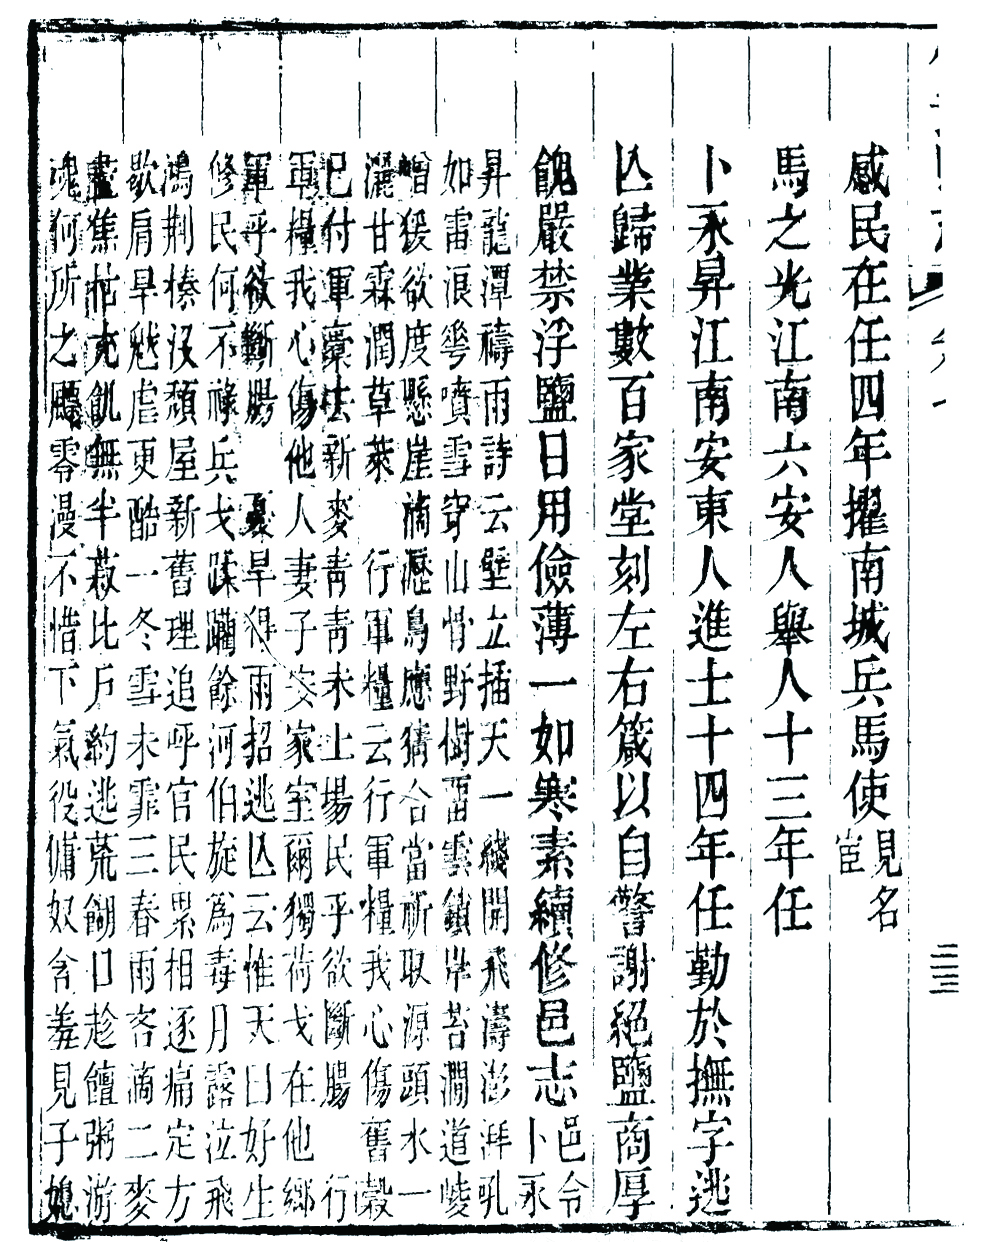 感民在任四年擢南城兵馬使見名宦
馬之光江南六安人舉人十三年任
卜永昇江南安東人進士十四年任勤於撫字逃
亾歸業數百家堂刻左右箴以自警謝絕鹽商厚
餽嚴禁浮鹽日用儉薄一如寒素續修邑志邑令卜永
昇龍潭禱雨詩云壁立插天一綫開飛濤澎湃吼
如雷浪花噴雪穿山骨野樹畱雲鎖岸苔澗道崚
嶒猨欲度懸崖滴瀝鳥應猜合當祈取源頭水一
灑甘霖潤草萊 行軍糧云行軍糧我心傷舊穀
已付軍囊去新麥青青未上場民乎欲斷腸 行
軍糧我心傷他人妻子安家室爾獨荷戈在他鄉
軍乎欲斷腸 憂旱得雨招逃亾云惟天曰好生
修民何不祿兵戈蹂躪餘河伯旋為毒月露泣飛
鴻荆榛沒頹屋新舊理追呼官民累相逐痛定方
歇肩旱魃虐更酷一冬雪未霏三春雨吝滴二麥
盡焦枯充飢無半菽比戶約逃荒餬口趁饘粥游
魂何所之飄零漫不惜下氣役傭奴含羞見子媳